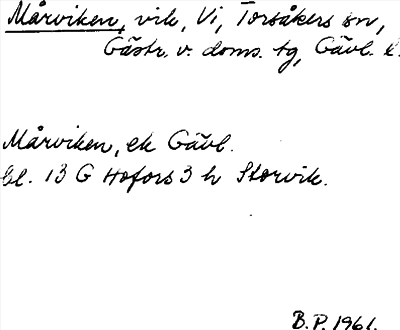 Mårviken, vik, Vi, Torsåkers sn,
Gästr. v. doms. tg, Gävl. l.
Mårviken, ek Gävl.
bl. 13 G Hofors 3 h Storvik.
B.P. 1961.